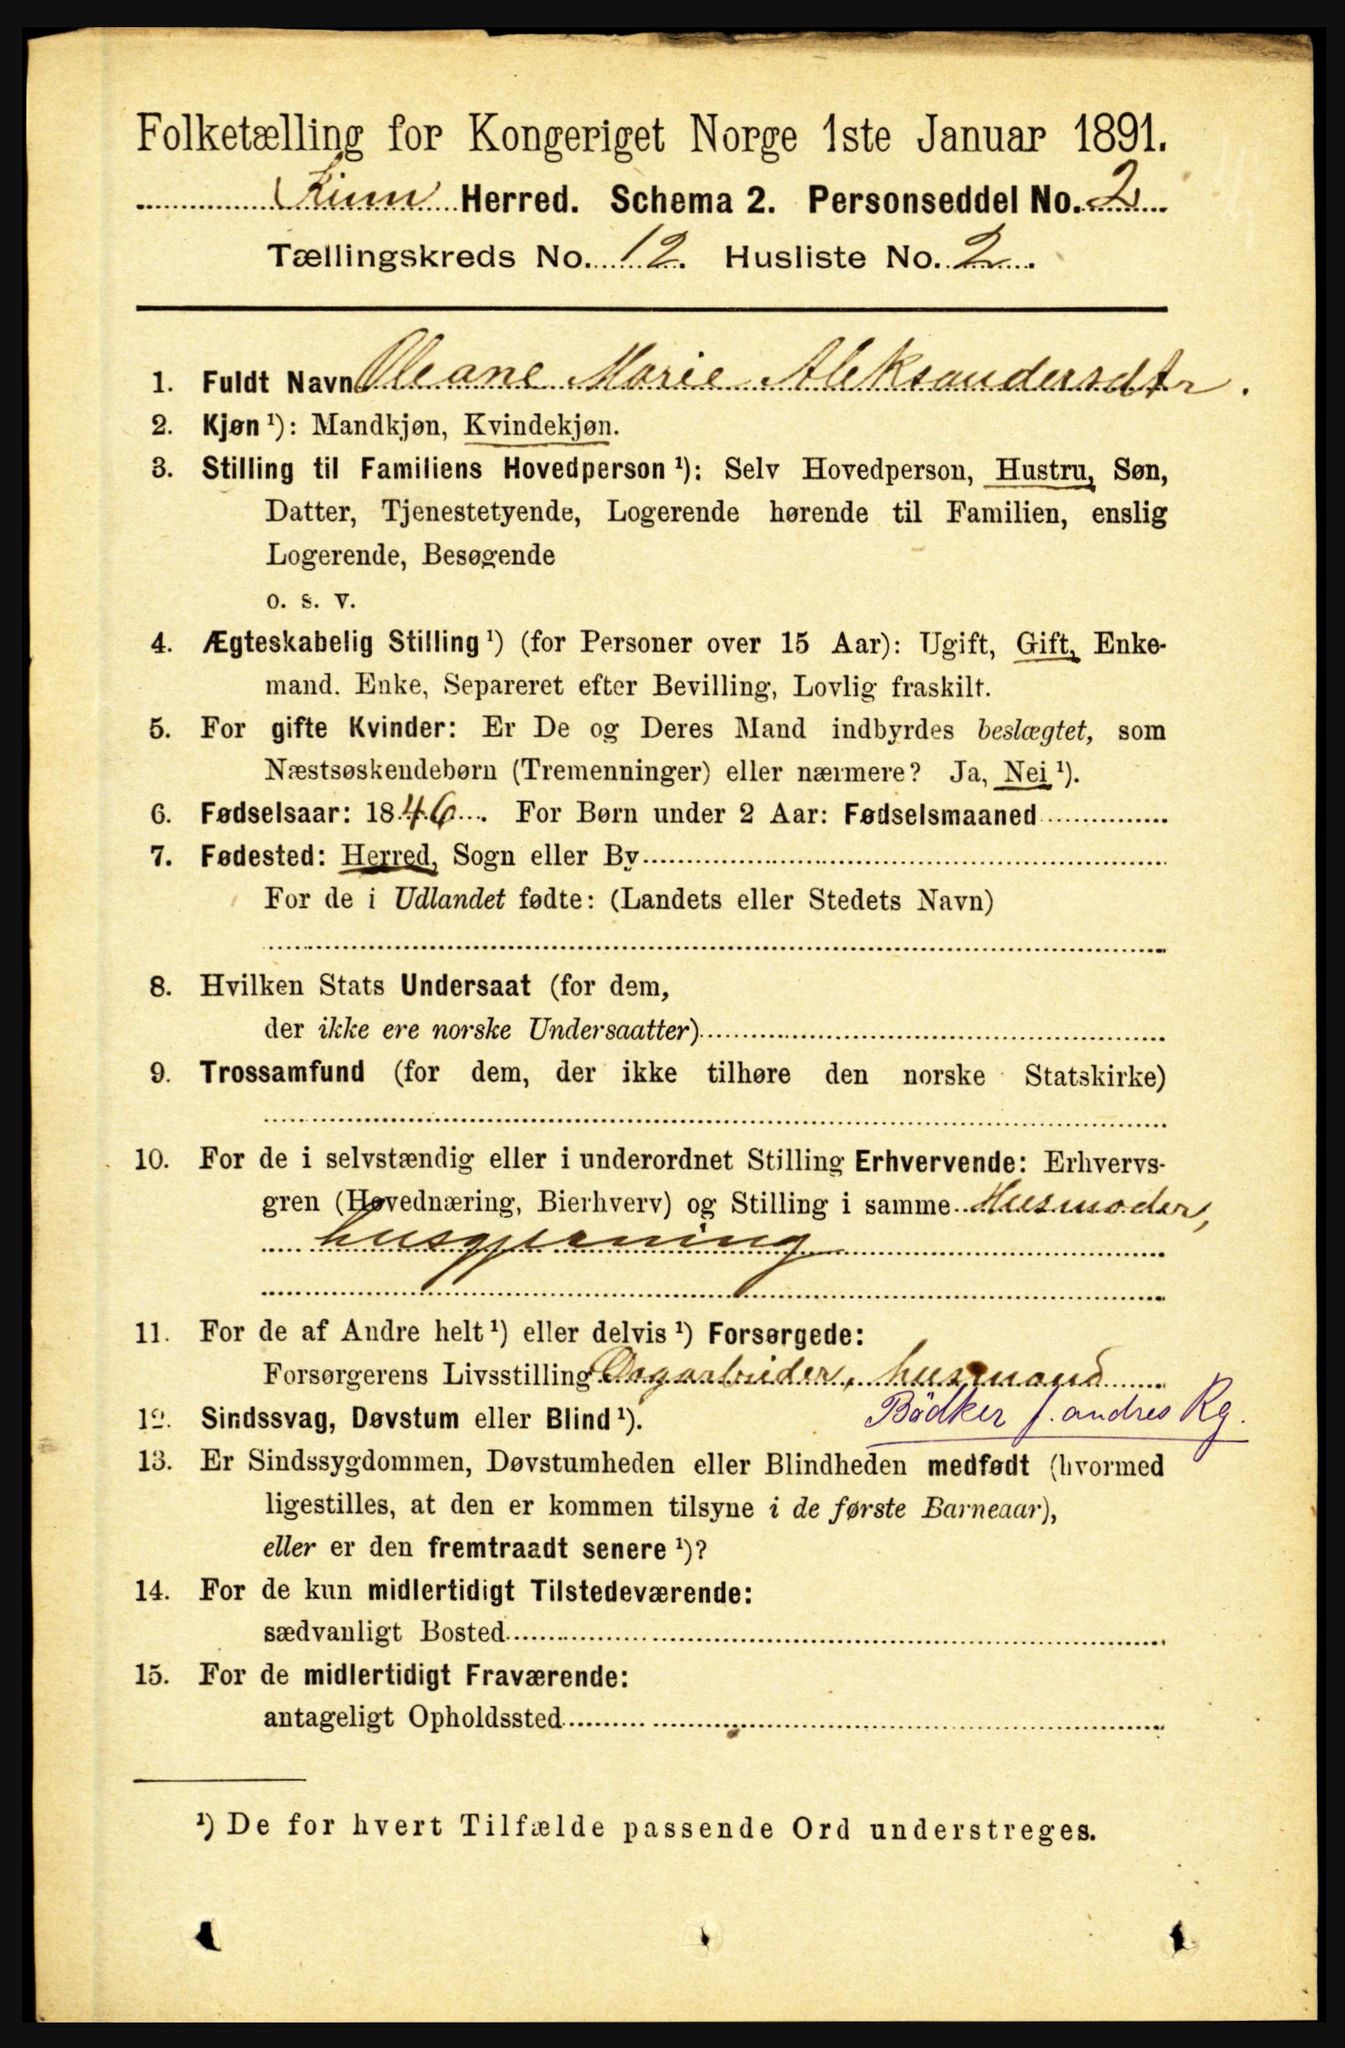 Folketælling for Kongeriget Norge 1ste Januar 1891.
Kinn Herred. Schema 2. Personseddel No. 2
Tællingskreds No. 12. Husliste No. 2.
1. Fuldt Navn Oleane Marie Aleksandersdtr.
2. Kjøn ¹): Mandkjøn, Kvindekjøn.
3. Stilling til Familiens Hovedperson ¹): Selv Hovedperson, Hustru, Søn,
Datter, Tjenestetyende, Logerende hørende til Familien, enslig
Logerende, Besøgende
o. s. v.
4. Ægteskabelig Stilling ¹) (for Personer over 15 Aar): Ugift, Gift, Enke-
mand. Enke, Separeret efter Bevilling, Lovlig fraskilt.
5. For gifte Kvinder: Er De og Deres Mand indbyrdes beslægtet, som
Næstsøskendebørn (Tremenninger) eller nærmere? Ja, Nei ¹).
6. Fødselsaar: 1846. For Børn under 2 Aar: Fødselsmaaned
7. Fødested: Herred, Sogn eller By
For de i Udlandet fødte: (Landets eller Stedets Navn)
8. Hvilken Stats Undersaat (for dem,
der ikke ere norske Undersaatter)
9. Trossamfund (for dem, der ikke tilhøre den norske Statskirke)
10. For de i selvstændig eller i underordnet Stilling Erhvervende: Erhvervs-
gren (Hovednæring, Bierhverv) og Stilling i samme Husmoder,
husgjerning
11. For de af Andre helt ¹) eller delvis ¹) Forsørgede:
Forsørgerens Livsstilling Dagarbeider, husmand
Bödker f. andres Rg.
12. Sindssvag, Døvstum eller Blind ¹).
13. Er Sindssygdommen, Døvstumheden eller Blindheden medfødt (hvormed
ligestilles, at den er kommen tilsyne i de første Barneaar),
eller er den fremtraadt senere ¹)?
14. For de kun midlertidigt Tilstedeværende:
sædvanligt Bosted
15. For de midlertidigt Fraværende:
antageligt Opholdssted
¹) De for hvert Tilfælde passende Ord understreges.